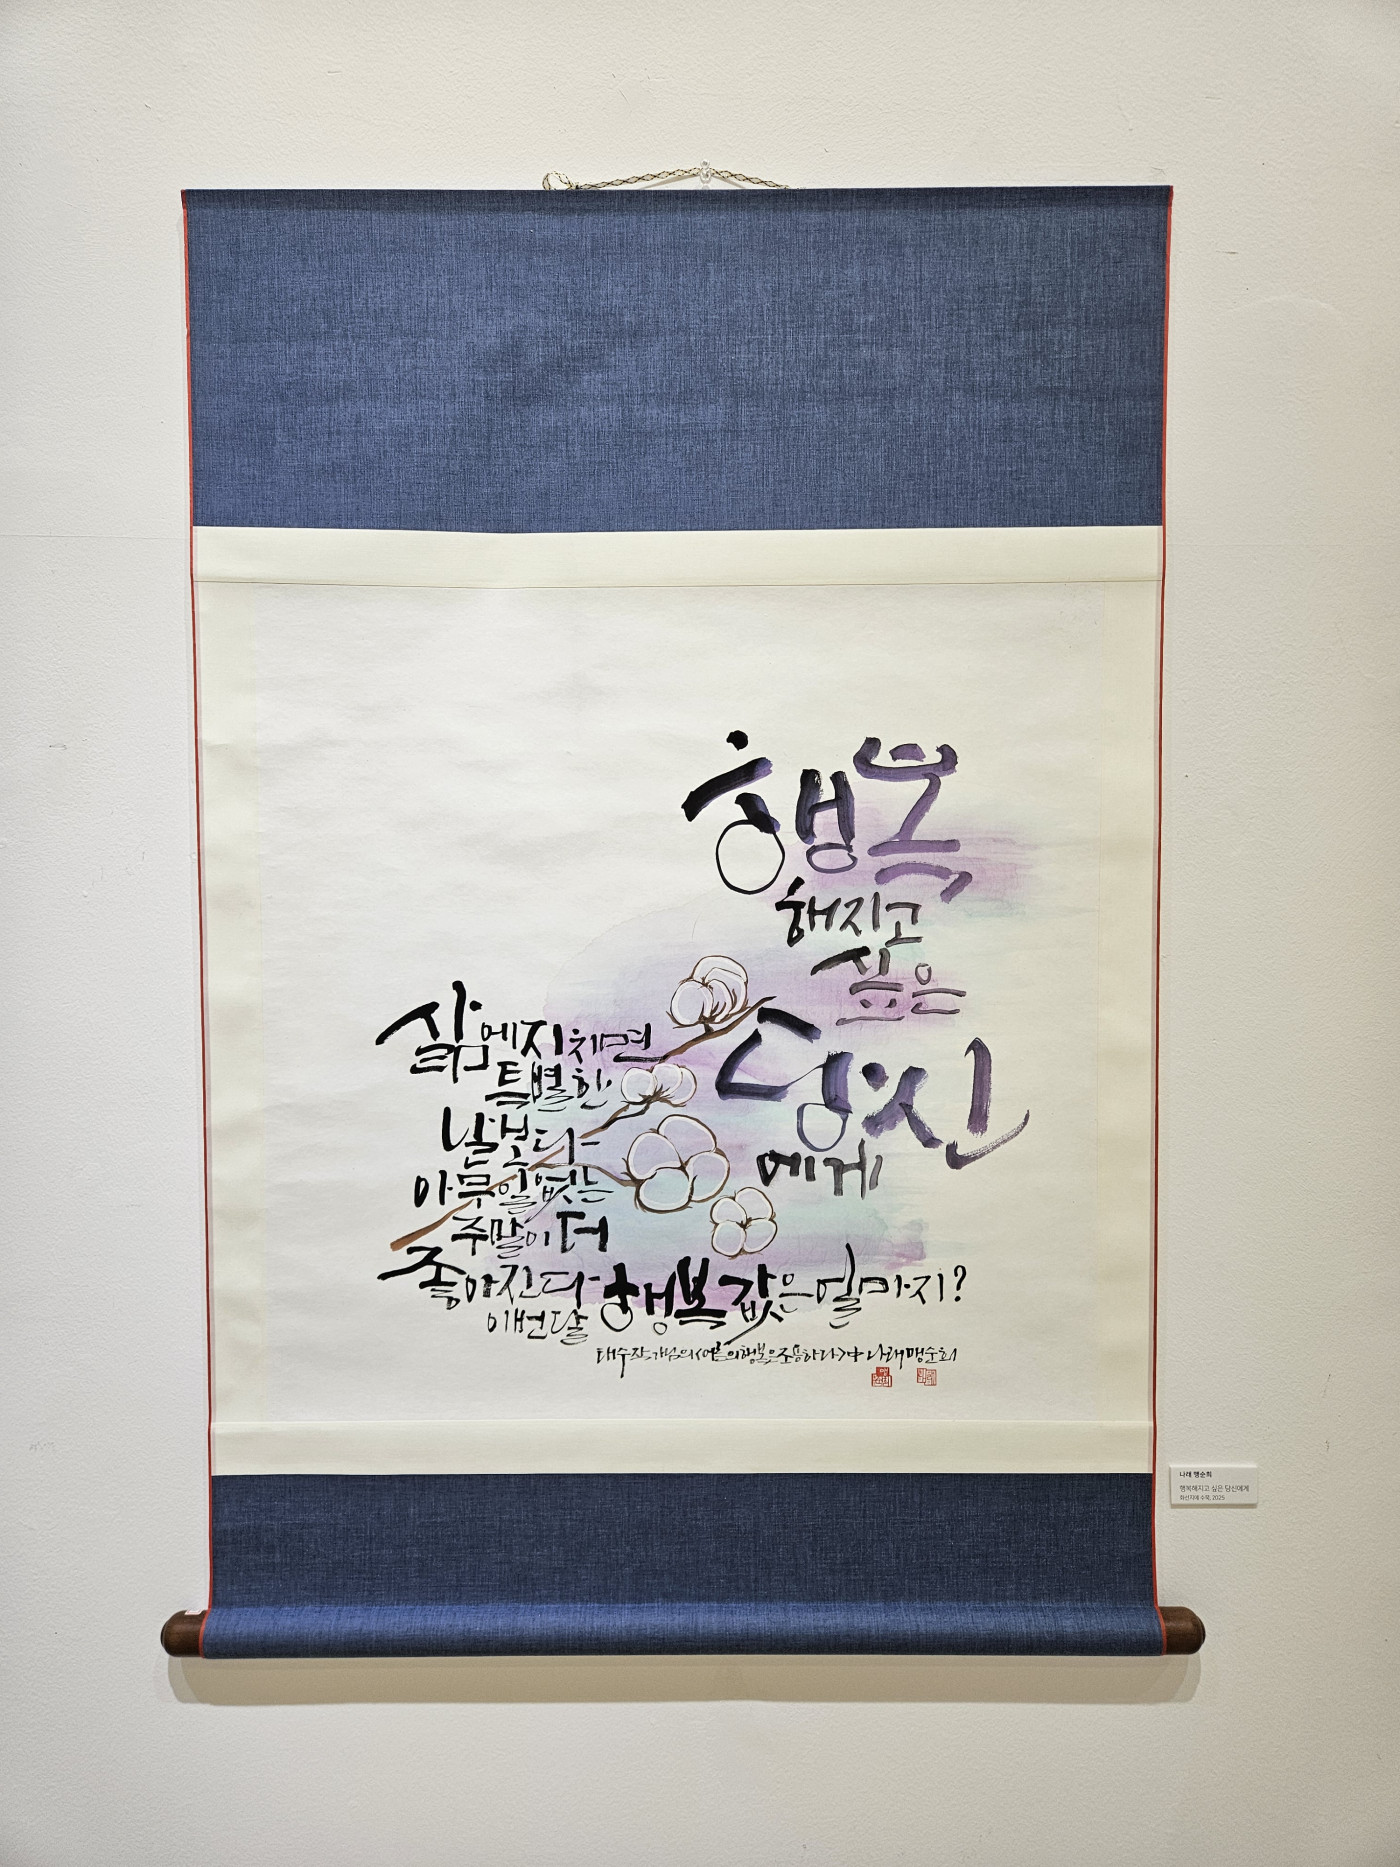 행복
해지고
싶은
당신
에게
삶에 지치면
특별한
날보다
아무 일 없는
주말이 더
좋아진다
이번 달 행복 값은 얼마지?
태수 작가님의 <어른의 행복은 조용하다> 中 나래 맹순희
나래 맹순희
행복해지고 싶은 당신에게
화선지에 수묵, 2025